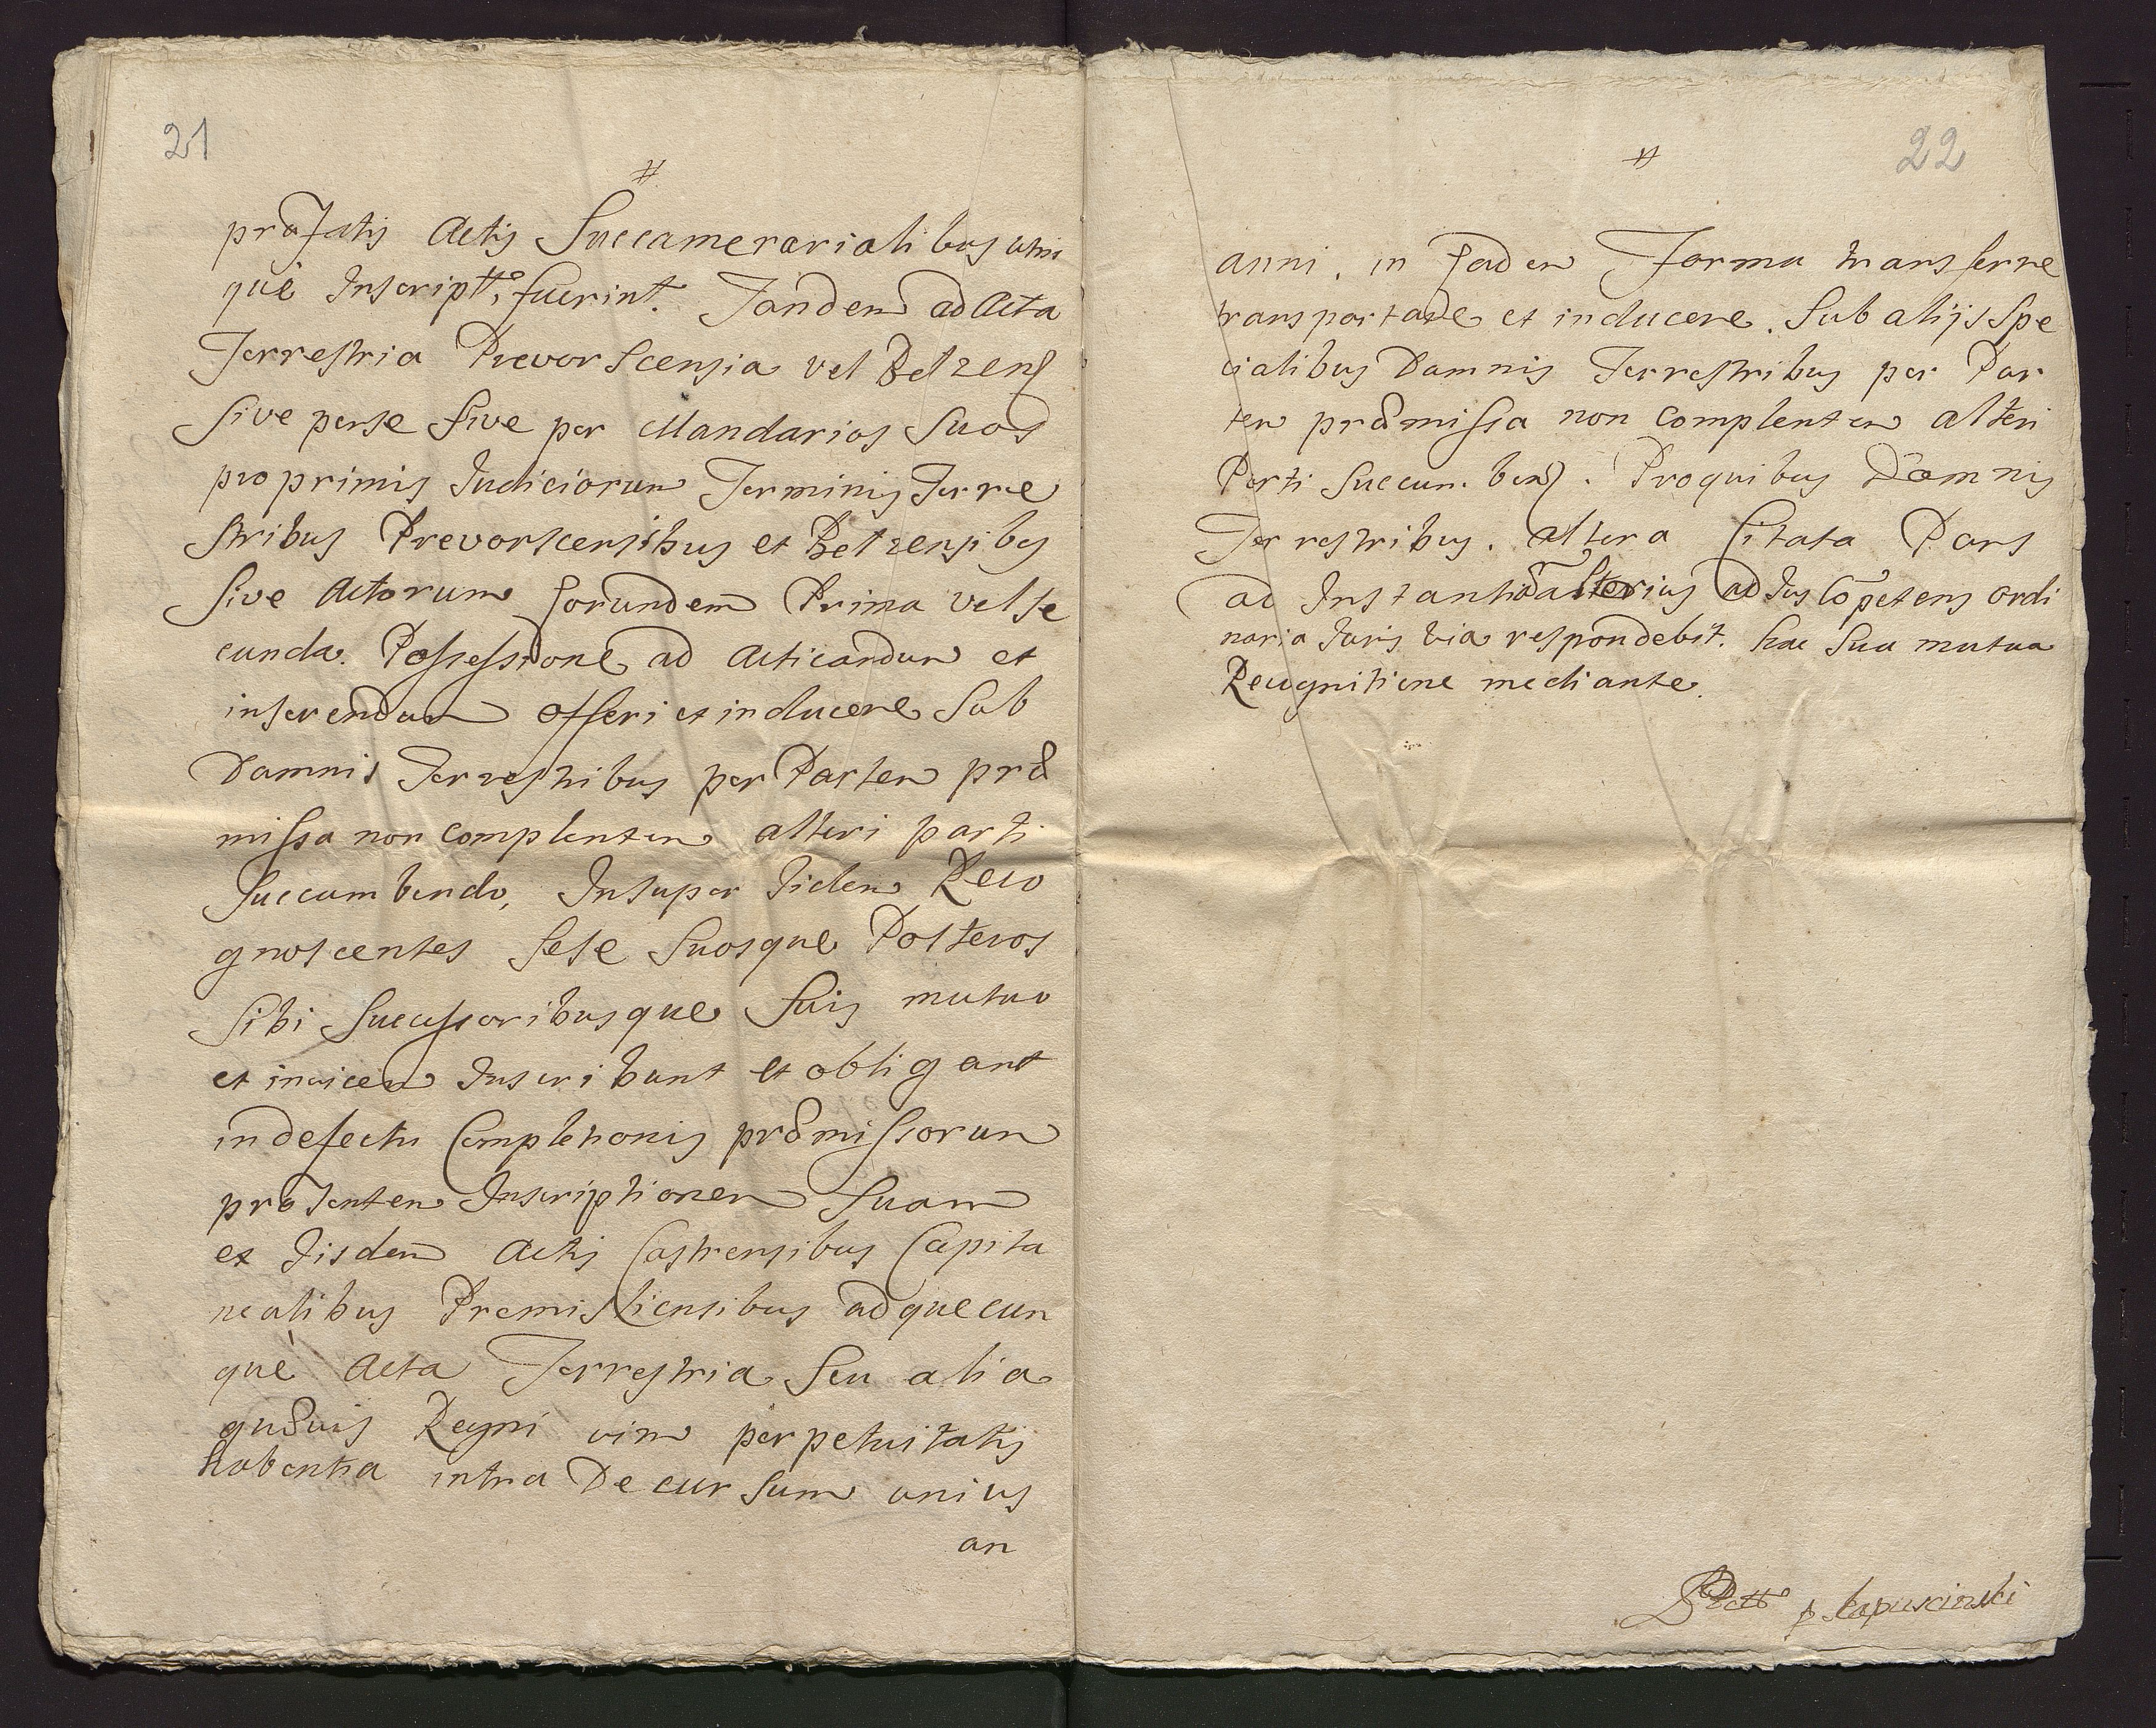 21
#
præfatis Actis Succamerarialibus utrin
què Inscripti fuerint. Tandem ad Acta
Terrestria Prevorscensia vel Belzens
Sive per se Sive per Mandarios Suos
pro primis Judiciorum Terminis Terre
stribus Prevorscensibus et Belzensibus
Sive Actorum Eorundem Prima vel se
cunda Possessione ad Acticandum et
inserendum offeri et inducere Sub
Damnis Terrestribus per Partem præ
missa non complentem alteri parti
Succumbendo, Insuper Iidem Reco
gnoscentes Sese Suosque Posteros
Sibi Successoribusque Suis mutuo
et invicem Inscribunt et obligant
in defectu Completionis præmissorum
præsentem Inscriptionem Suam
ex Iisdem Actis Castrensibus Capita
nealibus Premisliensibus ad quecun
què Acta Terrestria Seu alia
quævis Regni vim perpetuitatis
habentia intra Decursum unius
an
22
#
anni. in Eadem Forma transferre
transportare et inducere. Sub alijs Spe
cialibus Damnis Terrestribus per Par
tem præmissa non complentem alteri
Parti Succumbend. Pro quibus Damnis
Terrestribus. altera Citata Pars
ad Instantiã alterius ad Jus Cõpetens ordi
naria Juris via respondebit. hac Sua mutua
Recognitione mediante.
p Łapuscinski